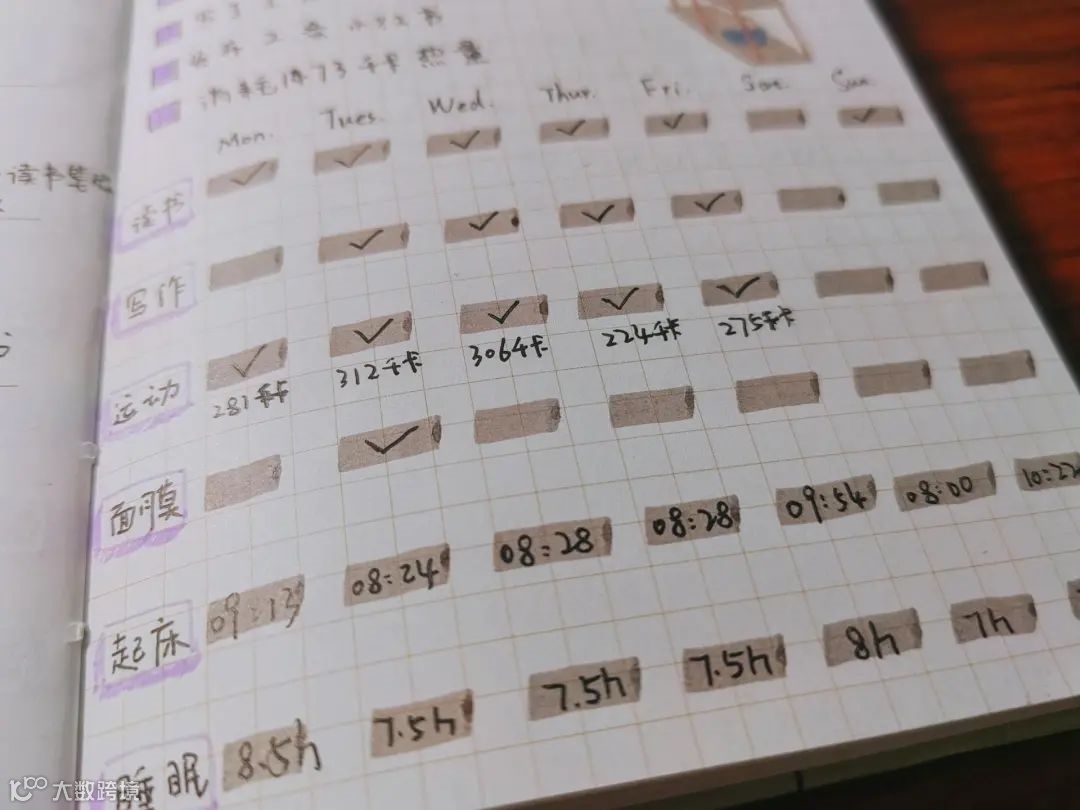 消耗掉73千卡热量
Mon. Tues. Wed. Thur. Fri. Sat. Sun.
读书 ✓ ✓ ✓ ✓ ✓ ✓
写作 ✓ ✓ ✓ ✓
运动 ✓ ✓ ✓ ✓ ✓
281千卡 312千卡 306千卡 224千卡 275千卡
面膜 ✓
起床 09:13 08:24 08:28 08:28 09:54 08:00
睡眠 8.5h 7.5h 7.5h 7.5h 8h 7h
读书笔
大数跨境